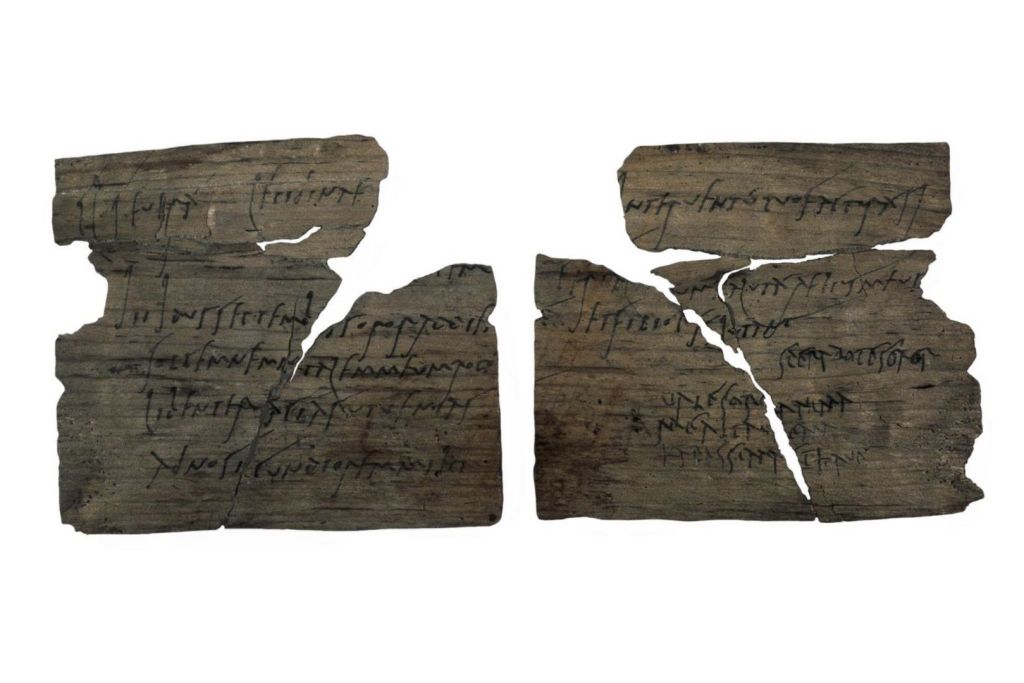 Cl · Seuerá Lepidinae
iii Idus Septembr s soror ad diem
sollemnem natalem meum rogó
libenter faciás ut uenias
ad nos iucundiorem mihi
interuentú tuo facturá si
Cerial uum salutá Aelius meus
et filiolus salutant
sperabo te soror
uale soror anima
mea ita ualeam
karissima et haue